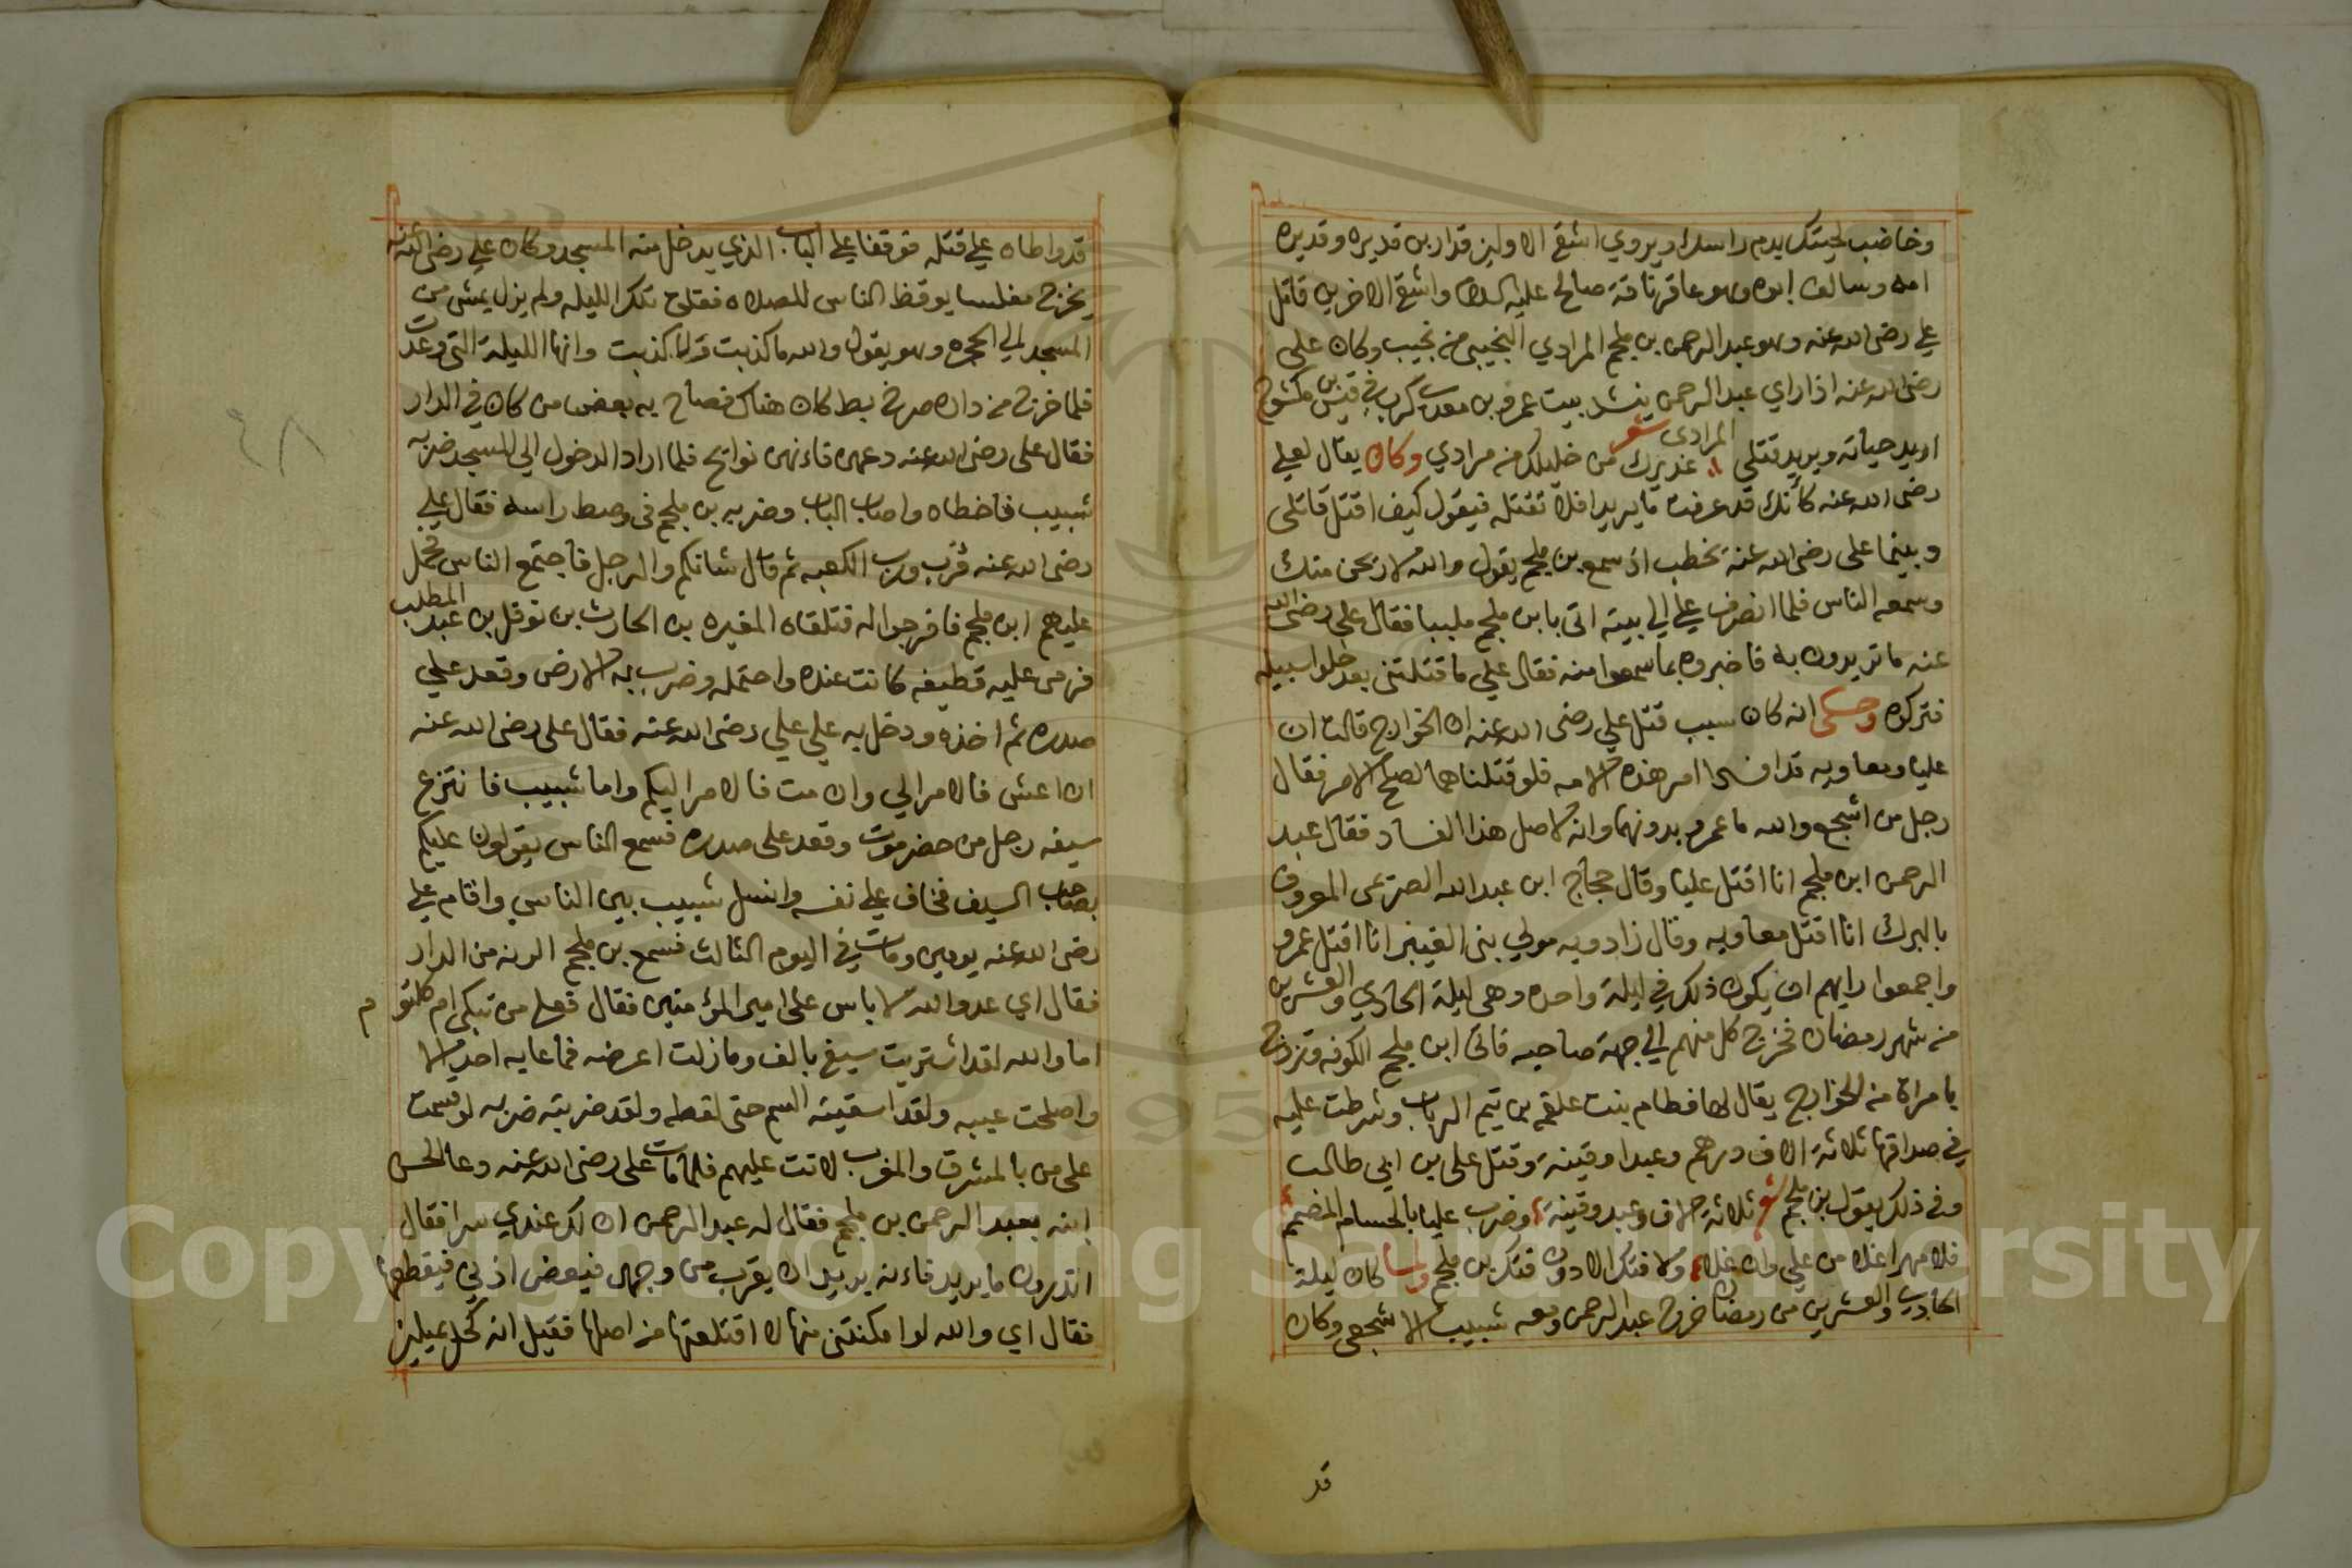 وخاضب لحيتك بدم راسك ويروي اشقي الاولين قدار بن قديره وقديره
امه وسالف ابوه وهو عاقر ناقة صالح عليه السلام واشقي الاخرين قاتل
علي رضي الله عنه وهو عبد الرحمن بن ملجم المرادي التجيبي من تجيب وكان علي
رضي الله عنه اذا راي عبد الرحمن ينشد بيت عمرو بن معدي كرب في قيس بن مكشوح
المرادى شعر
اريد حياته ويريد قتلي عذيرك من خليلك من مرادي وكان يقال لعلي
رضي الله عنه كأنك قد عرفت ما يريد افلا تقتله فيقول كيف اقتل قاتلي
وبينما على رضي الله عنه يخطب اذ سمع بن ملجم يقول والله لاريحن منك
وسمعه الناس فلما انصرف علي الي بيته اتى بابن ملجم ملببا فقال علي رضى الله
عنه ما تريدون به فاخبروه بما سمعوا منه فقال علي ما قتلتنى بعد خلوا سبيله
فتركوه وحكى انه كان سبب قتل علي رضى الله عنه ان الخوارج قالت ان
عليا ومعاويه قد افسدا امر هذه الامه فلو قتلناهما لصلح الامر فقال
رجل من اشجع والله ما عمرو بدونهما وانه لاصل هذا الفساد فقال عبد
الرحمن ابن ملجم انا اقتل عليا وقال حجاج ابن عبد الله الصريمى المعروف
بالبرك انا اقتل معاويه وقال زادويه مولي بنى العنبر انا اقتل عمرو
واجمعوا رايهم ان يكون ذلك في ليلة واحده وهى ليلة الحادي والعشرين
من شهر رمضان فخرج كل منهم الي جهة صاحبه فاتى ابن ملجم الكوفه وتزوج
بامراة من الخوارج يقال لها فطام بنت علقمه من تيم الرباب وشرطت عليه
في صداقها ثلاثة الاف درهم وعبدا وقينة وقتل على بن ابي طالب
وفي ذلك يقول بن ملجم شعر ثلاثة الاف وعبد وقينة وضرب عليا بالحسام المصمم
فلا مهر اغلا من علي وان غلا ولا فتك الا دون فتك بن ملجم ولما كان ليلة
الحادي والعشرين من رمضان خرج عبد الرحمن ومعه شبيب الاشجعى وكان
قد
قد واطاه علي قتله فوقفا علي الباب الذي يدخل منه المسجد وكان علي رضى الله عنه
يخرج مغلسا يوقظ الناس للصلاه فقلق تلك الليله ولم يزل يمشى من
المسجد الي الحجره وهو يقول والله ما كذبت ولا كذبت وانها الليلة التى وعدت
فلما خرج من داره صرخ بط كان هناك فصاح به بعض من كان في الدار
فقال على رضى الله عنه دعهن فاءنهن نوايح فلما اراد الدخول الي المسجد ضربه
شبيب فاخطاه واصاب الباب وضربه بن ملجم في وسط راسه فقال علي
رضى الله عنه فزت ورب الكعبه ثم قال شانكم والرجل فاجتمع الناس فحمل
عليهم ابن ملجم فافرجوا له فتلقاه المغيره بن الحارث بن نوفل بن عبد المطلب
فرمى عليه قطيفه كانت عنده واحتمله وضرب به الارض وقعد علي
صدره ثم اخذه ودخل به على علي رضى الله عنه فقال على رضى الله عنه
ان اعش فالامر الي وان مت فالامر اليكم واما شبيب فانتزع
سيفه رجل من حضرموت وقعد على صدره فسمع الناس يقولون عليكم
بصاحب السيف فخاف علي نفسه وانسل شبيب بين الناس واقام علي
رضى الله عنه يومين ومات في اليوم الثالث فسمع بن ملجم الرنه من الدار
فقال اي عدو الله لا باس على امير المؤمنين فقال فعلى من تبكى ام كلثوم
اما والله لقد اشتريت سيفي بالف وما زلت اعرضه فما عابه احد الا
واصلحت عيبه ولقد اسقيته السم حتى لفظه ولقد ضربته ضربه لو قسمت
على من بالمشرق والمغرب لاتت عليهم فلما مات على رضى الله عنه دعا الحسن
ابنه بعبد الرحمن بن ملجم فقال له عبد الرحمن ان لك عندي سرا فقال
اتدرون ما يريد فاءنه يريد ان يقرب من وجهى فيعض اذني فيقطعها
فقال اي والله لو امكنتنى منها لاقتلعتها من اصلها فقيل انه كحل بميلين
٤٨
Copyright © King Saud University
1957